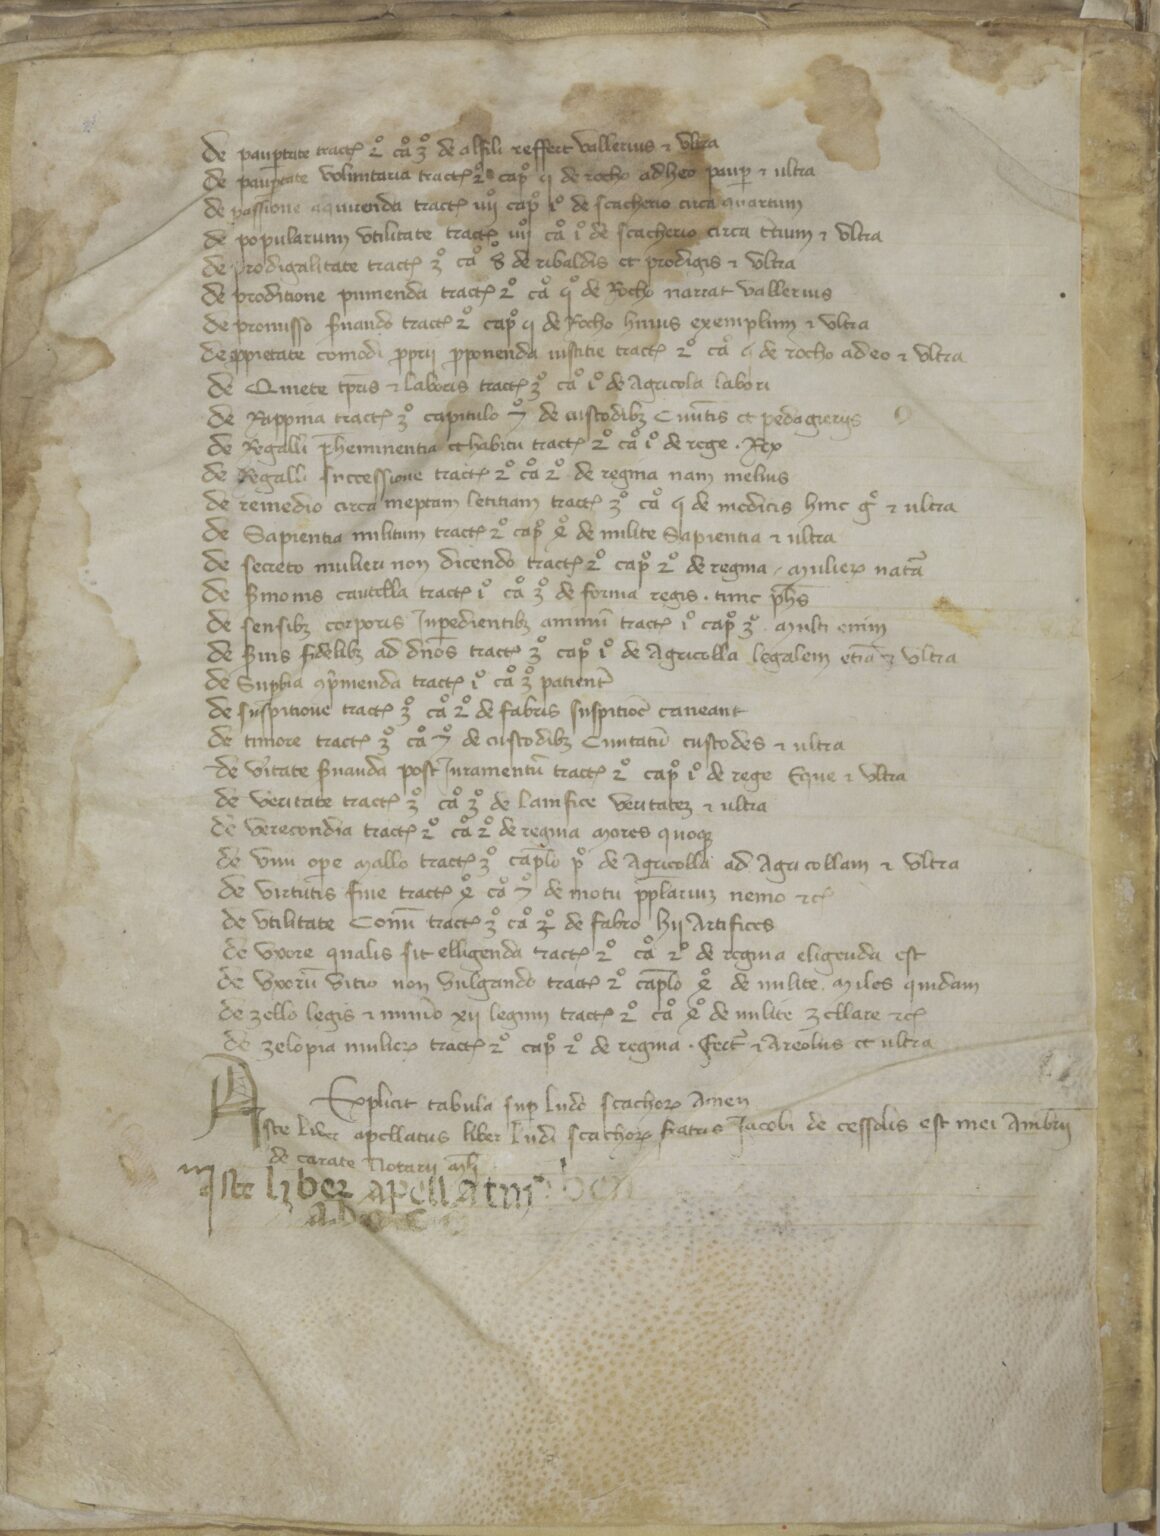 de paup̄tate tractꝰ 2º cͣº 3º de alfili reffert vallerius ⁊ vltra
de paup̄tate voluntaria tractꝰ 2º capº q de rocho adheo paup̄ ⁊ ultra
de passione tractꝰ iiijº capº iº de scacherio circa quartum
de popularium vtilitate tractꝰ iiijº cͣº iº de scacherio circa t̄tium ⁊ vltra
de prodigalitate tractꝰ 3º cͣº 8º de ribaldis et prodigis ⁊ vltra
de proditione punienda tractꝰ 2º cͣº qº de Rocho narrat vallerius
de promisso s̄uando tractꝰ 2º capº q de Rocho huius exemplum ⁊ vltra
de ꝓpietate comodi ꝓprii p̄ponenda iustitie tractꝰ 2º cͣº q de rocho adeo ⁊ vltra
de Quiete tp̄ris ⁊ laboris tractꝰ 3º cͣº iº de Agricola labori
de Rappina tractꝰ 3º capitulo 7º de custodibꝫ Ciuitatis et pedagierijs
de Regalli p̄heminentia et habitu tractꝰ 2º cͣº iº de rege . Rex
de Regalli successione tractꝰ 2º cͣº 2º de regina nam melius
de remedio circa ineptam letitiam tractꝰ 3º cͣº q de medicis hinc gº ⁊ ultra
de Sapientia militum tractꝰ 2º capº 4º de milite Sapientia ⁊ ultra
de secreto mulieri non dicendo tractꝰ 2º capº 2º de regina . mulierꝝ natͣ
de s̄monis cautella tractꝰ iº cͣº 3º de forma regis . tunc ph̄s
de sensibꝫ corporis Inpedientibꝫ animū tractꝰ iº capº 3º multi enim
de s̄uis fidelibꝫ ad dn̄os tractꝰ 3º capº iº de Agricolla legalem etiā ⁊ vltra
de Sup̄bia op̄menda tractꝰ iº cͣº 3º patient̄
de suspitione tractꝰ 3º cͣº 2º de fabris suspitiōē caueant
de timore tractꝰ 3º cͣº 7º de custodibꝫ Ciuitatū custodes ⁊ ultra
de v̄itate s̄uanda post Iuramentū tractꝰ 2º capº iº de rege Eque ⁊ vltra
de veritate tractꝰ 3º cͣº 3º de lanifice veritateꝫ ⁊ ultra
de verecondia tractꝰ 2º cͣº 2º de regina mores quoqꝫ
de viui ope mallo tractꝰ 3º cap̄lo pº de Agricolla ad Agricollam ⁊ vltra
de virtutis fine tractꝰ 4º cͣº 7º de motu pp̄lariuꝫ nemo ⁊cꝰ
de vtilitate Comū tractꝰ 3º cͣº 2º de fabro hij Artifices
de vxore qualis sit elligenda tractꝰ 2º cͣº 2º de regina eligenda est
de vxorū vitio non vulgando tractꝰ 2º cap̄lo 4º de milite . miles quidam
de zello legis ⁊ num̄o xij legum tractꝰ 2º cͣº 4º de milite zellare ⁊cꝰ
de zelopia mulierꝝ tractꝰ 2º capº 2º de regina . fert̄ ⁊ Areolus et ultra
Explicit tabula sup̄ ludo scachorꝝ Amen
Iste liber apellatus liber ludi scachorꝝ fratris Jacobi de cessolis est mei Ambrii
de carate Notarii mli
iste liber apellatus